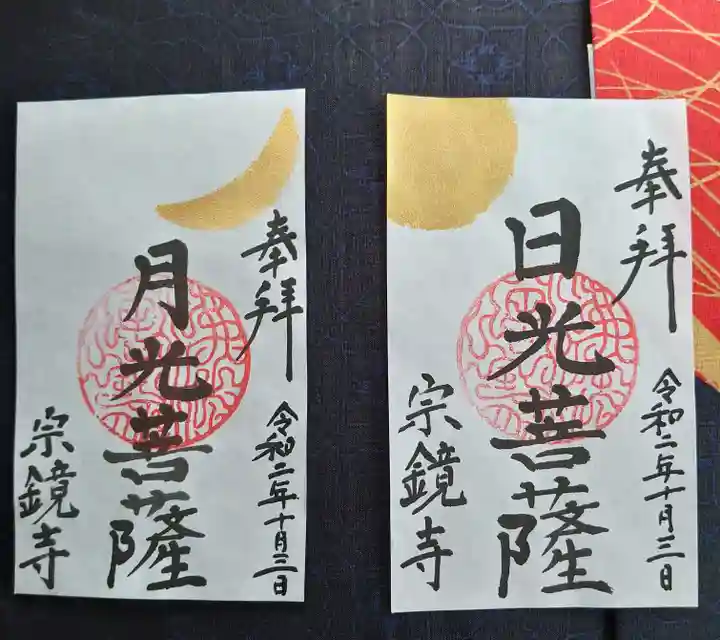 奉拝
日光菩薩
令和二年十月三日
宗鏡寺
奉拝
月光菩薩
令和二年十月三日
宗鏡寺